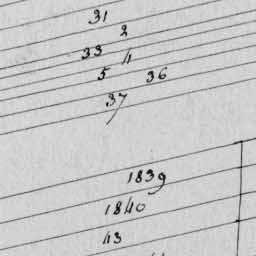 31
2
33
4
5
36
37
1839
1840
43